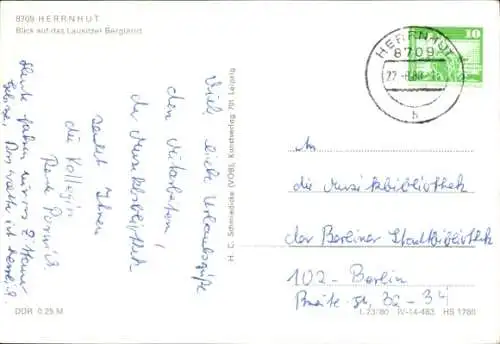 8709 HERRNHUT
Blick auf das Lausitzer Bergland
HERRNHUT
8709
10
b
Viele liebe Urlaubsgrüße
den Mitarbeitern
der Musikbibliothek
sendet Ihnen
die Kollegin
Heute fahren wir ins Zittauer
Gebirge. Das Wetter ist herrlich!
H. C. Schmiedicke (VOB), Kunstverlag 701 Leipzig
An
die Musikbibliothek
der Berliner Stadtbibliothek
102 - Berlin
Breite Str. 32 - 34
DDR 0.25 M
L 73/80 IV-14-483 HS 1786